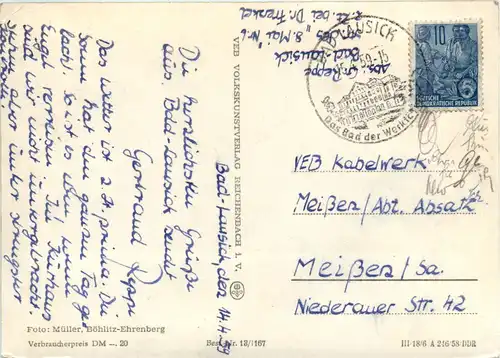 Bad-Lausick, den 14.4.59
Die herzlichsten Grüße
aus Bad Lausick sendet
Gertraud Reppe
Das Wetter ist z. Zt. prima. Die
Sonne hat den ganzen Tag ge-
lacht. So ist es eben, wenn
Engel verreisen. Im Kurhaus
sind wir nicht untergebracht.
aber unter
VEB VOLKSKUNSTVERLAG REICHENBACH I. V.
Abs. G. Reppe
Bad-Lausick
Str. des "8. Mai" Nr. 6
z. Zt. bei Dr. Frenkel
BAD LAUSICK
15.4.59-15
Das Bad der Werktä
10
DEUTSCHE
DEMOKRATISCHE REPUBLIK
VEB Kabelwerk
Meißen/Abt. Absatz
Meißen/Sa.
Niederauer Str. 42
Foto: Müller, Böhlitz-Ehrenberg
Verbraucherpreis DM —. 20
Best.-Nr. 13/1167
III-18/6 A 216/58 DDR